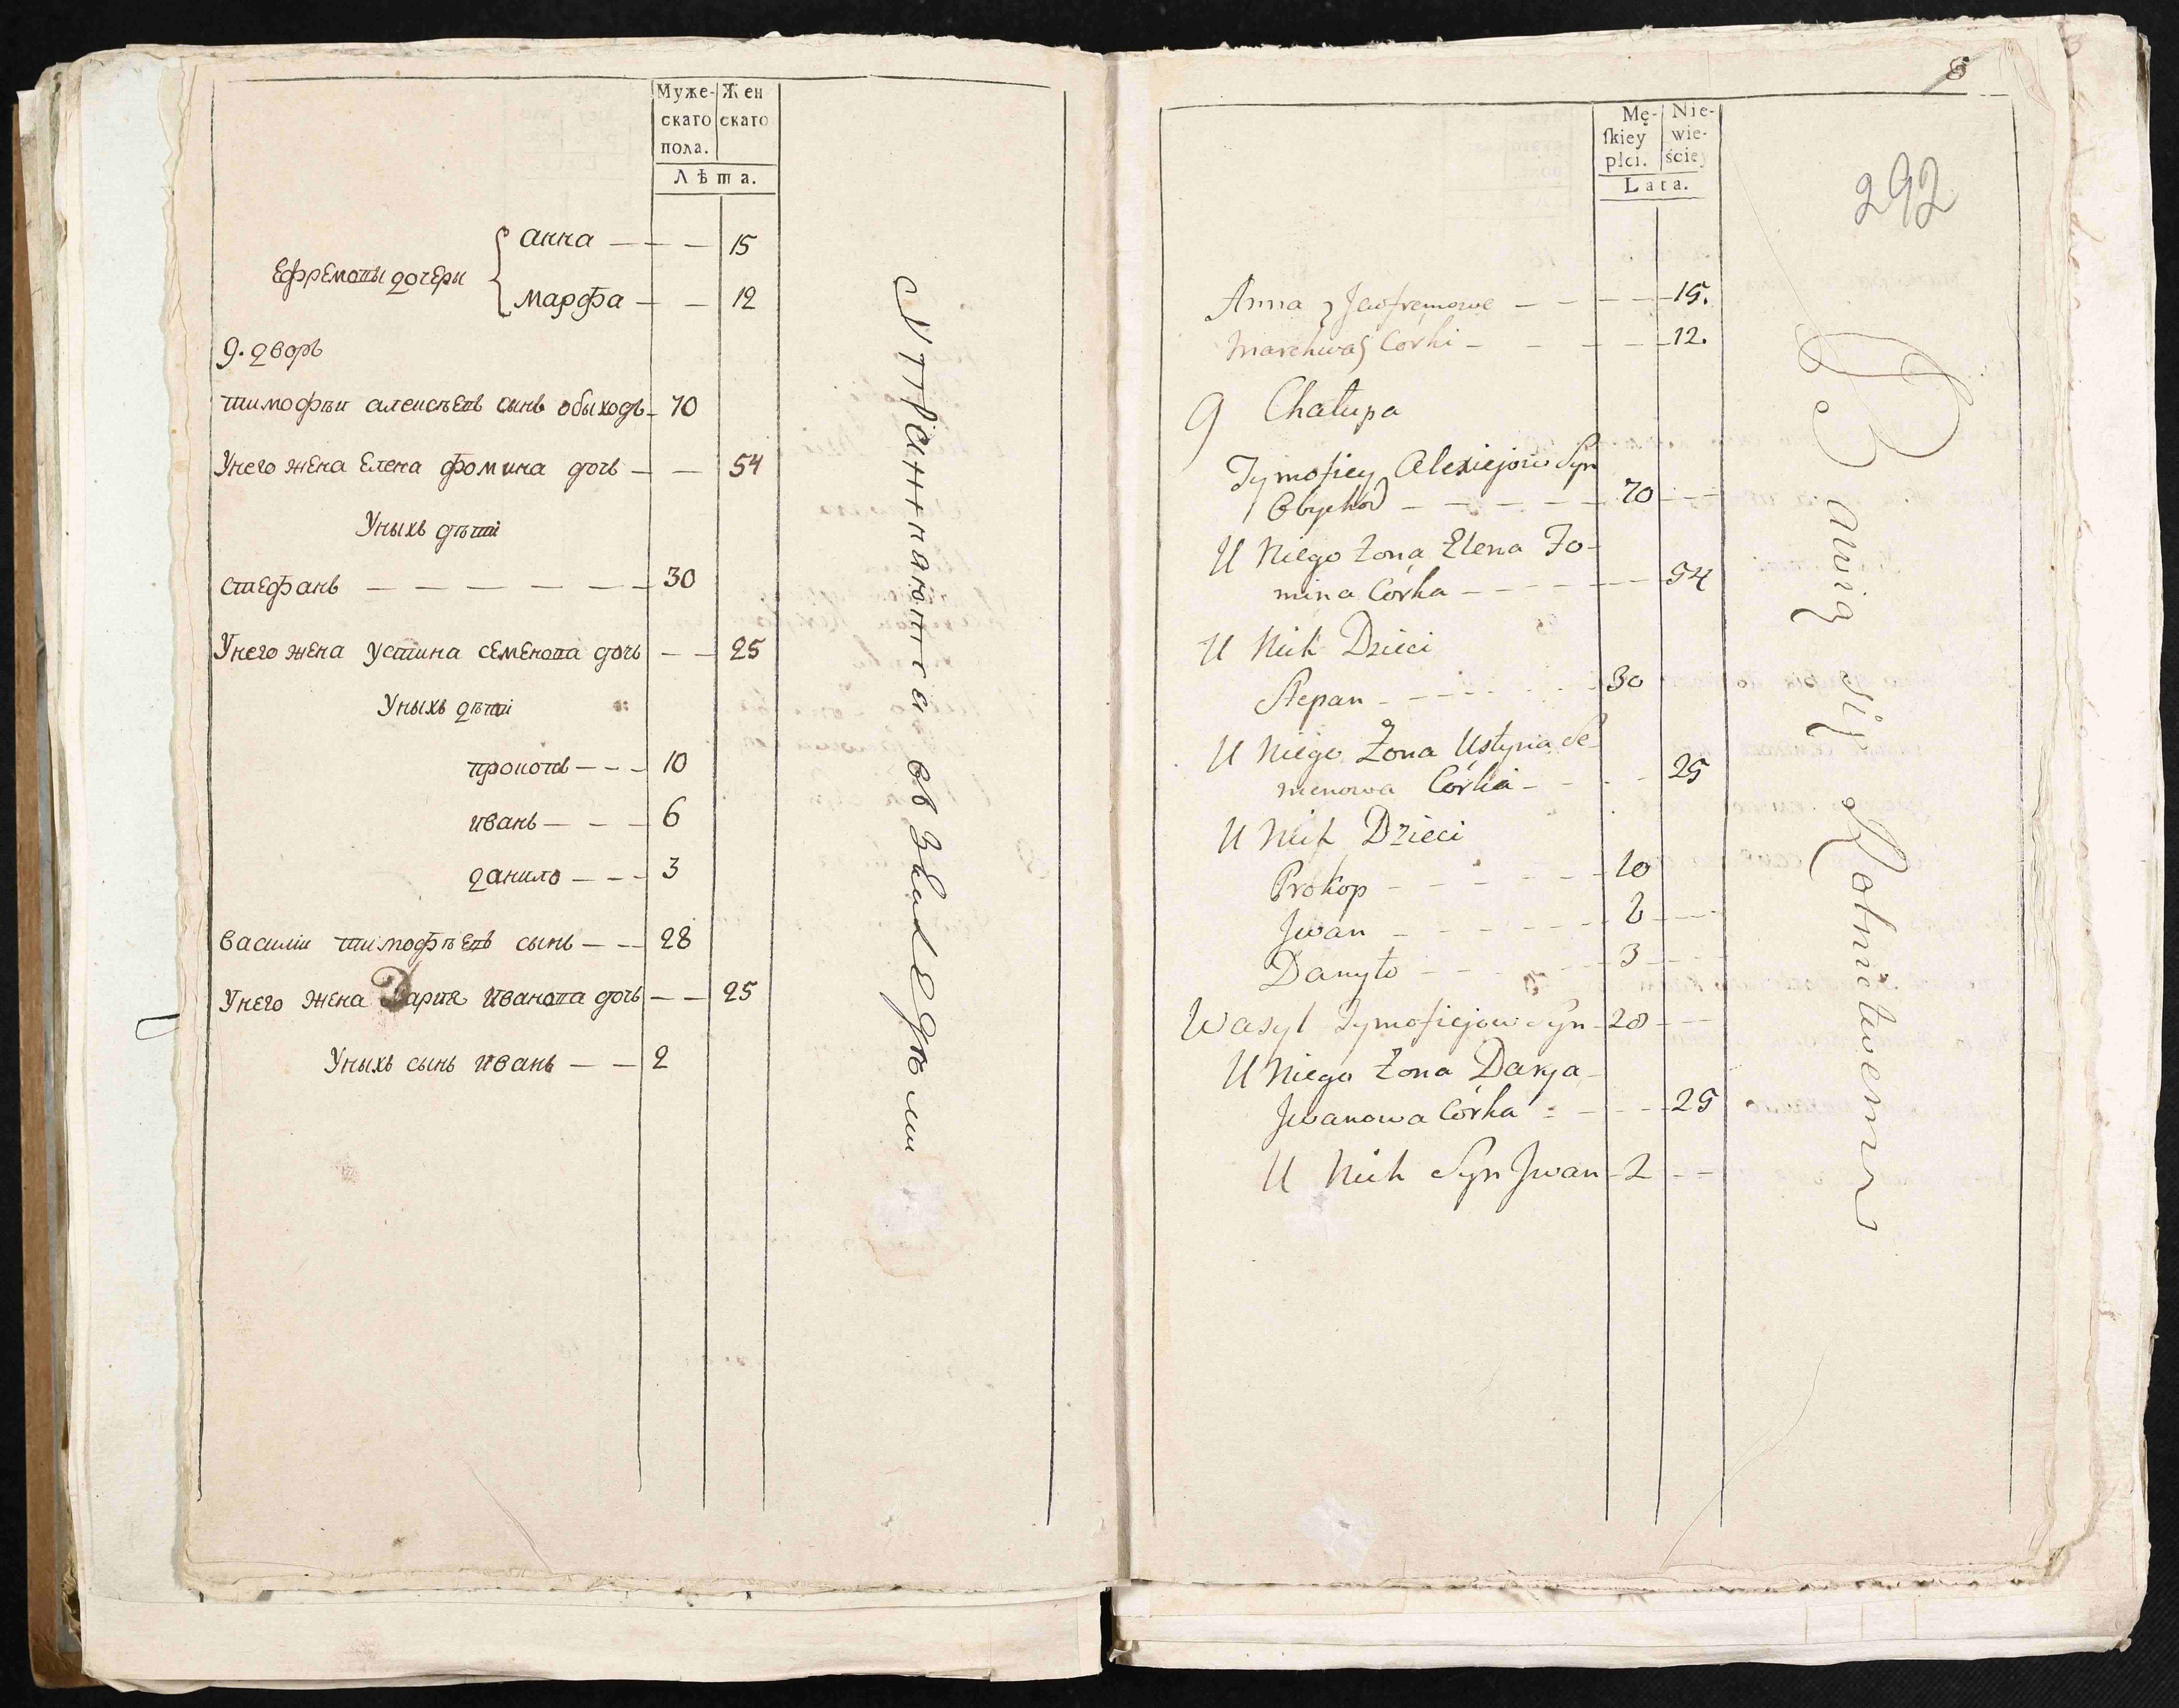 Муже-
скаго
пола.
Жен
скаго
Лѣта.
Ефремовы дочери
анна — — — 15
марфа — — 12
9. дворъ
тимофѣи алексѣевъ сынъ обыходъ — 70
Унего жена Елена фомина дочь — — 54
Уныхъ дѣти
стефанъ — — — — — — — 30
Унего жена устина семенова дочь — — 25
Уныхъ дѣти
прокопъ — — — 10
иванъ — — — 6
данило — — — 3
василіи тимофѣевъ сынъ — — 28
Унего жена Дария иванова дочь — — 25
Уныхъ сынъ иванъ — — 2
Упражняются въ земледѣліи
8
292
Mę-
ſkiey
płci.
Nie-
wie-
ściey
Lata.
Anna Jewfremowe — — — — 15.
Marchwa Corki — — — — 12.
9 Chałupa
Tymofiey Alexiejow Syn
Obychod — — — — — — 70 — —
U Niego Żona Elena Fo-
mina Córka — — — — — — 54
U Nich Dzieci
Stepan — — — — — — 30
U Niego Żona Ustynia Se-
menowa Córka — — — — 25
U Nich Dzieci
Prokop — — — — — — 10
Jwan — — — — — — 6 — —
Danyło — — — — — — 3 — —
Wasyl Tymofiejow Syn — 28 — —
U Niego Żona Darya
Jwanowa Córka — — — — 25
U Nich Syn Jwan — 2 — —
Bawią się Rolnictwem